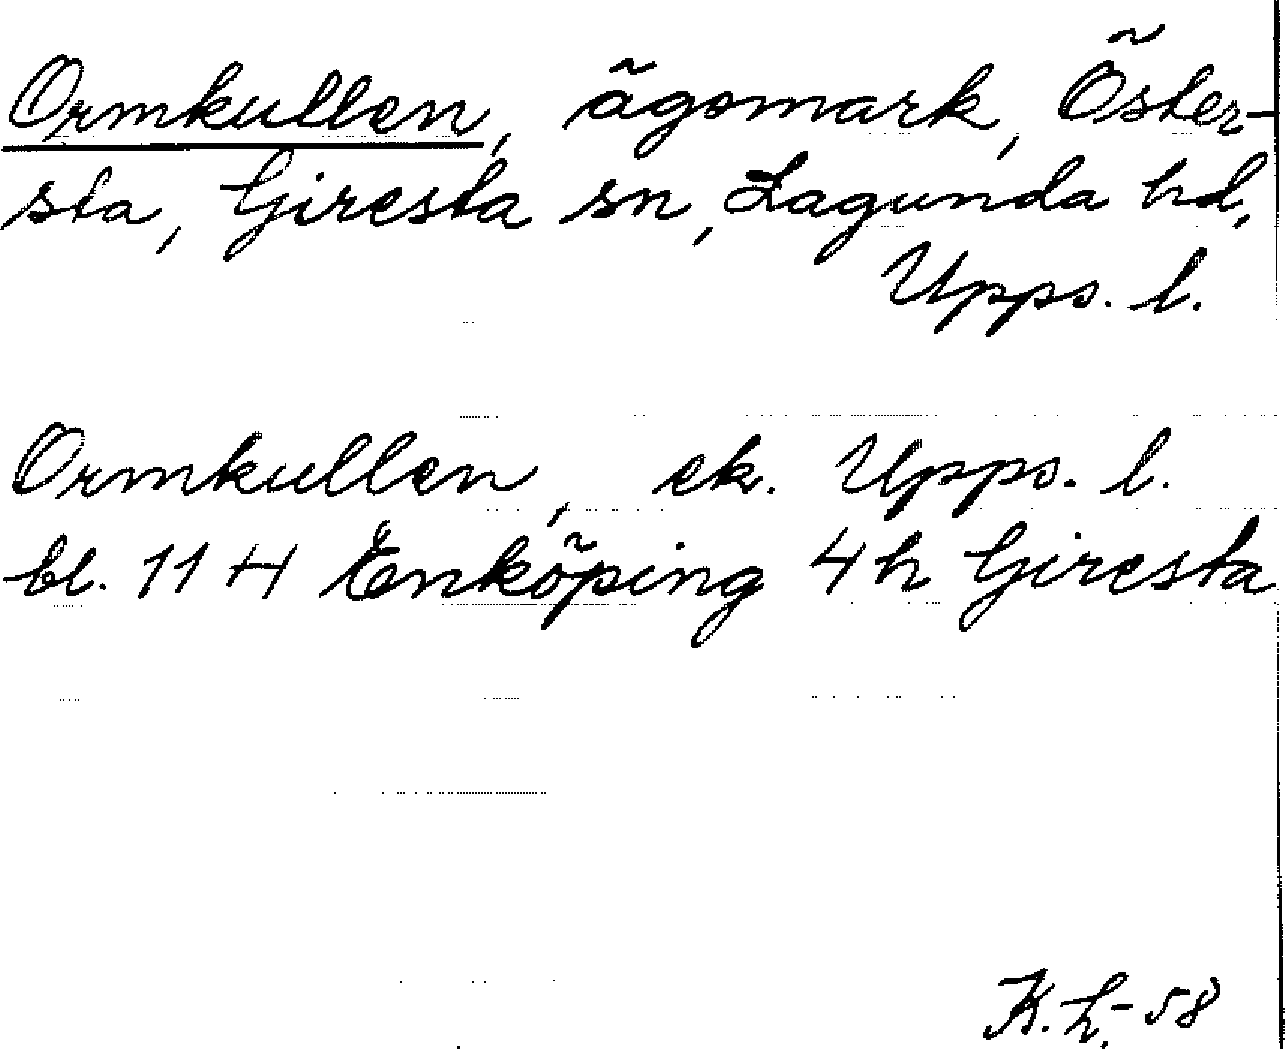 Ormkullen, ägomark, Öster-
sta, Giresta sn, Lagunda hd,
Upps. l.
Ormkullen, ek. Upps. l.
bl. 11 H Enköping 4 h Giresta
K. L. -58